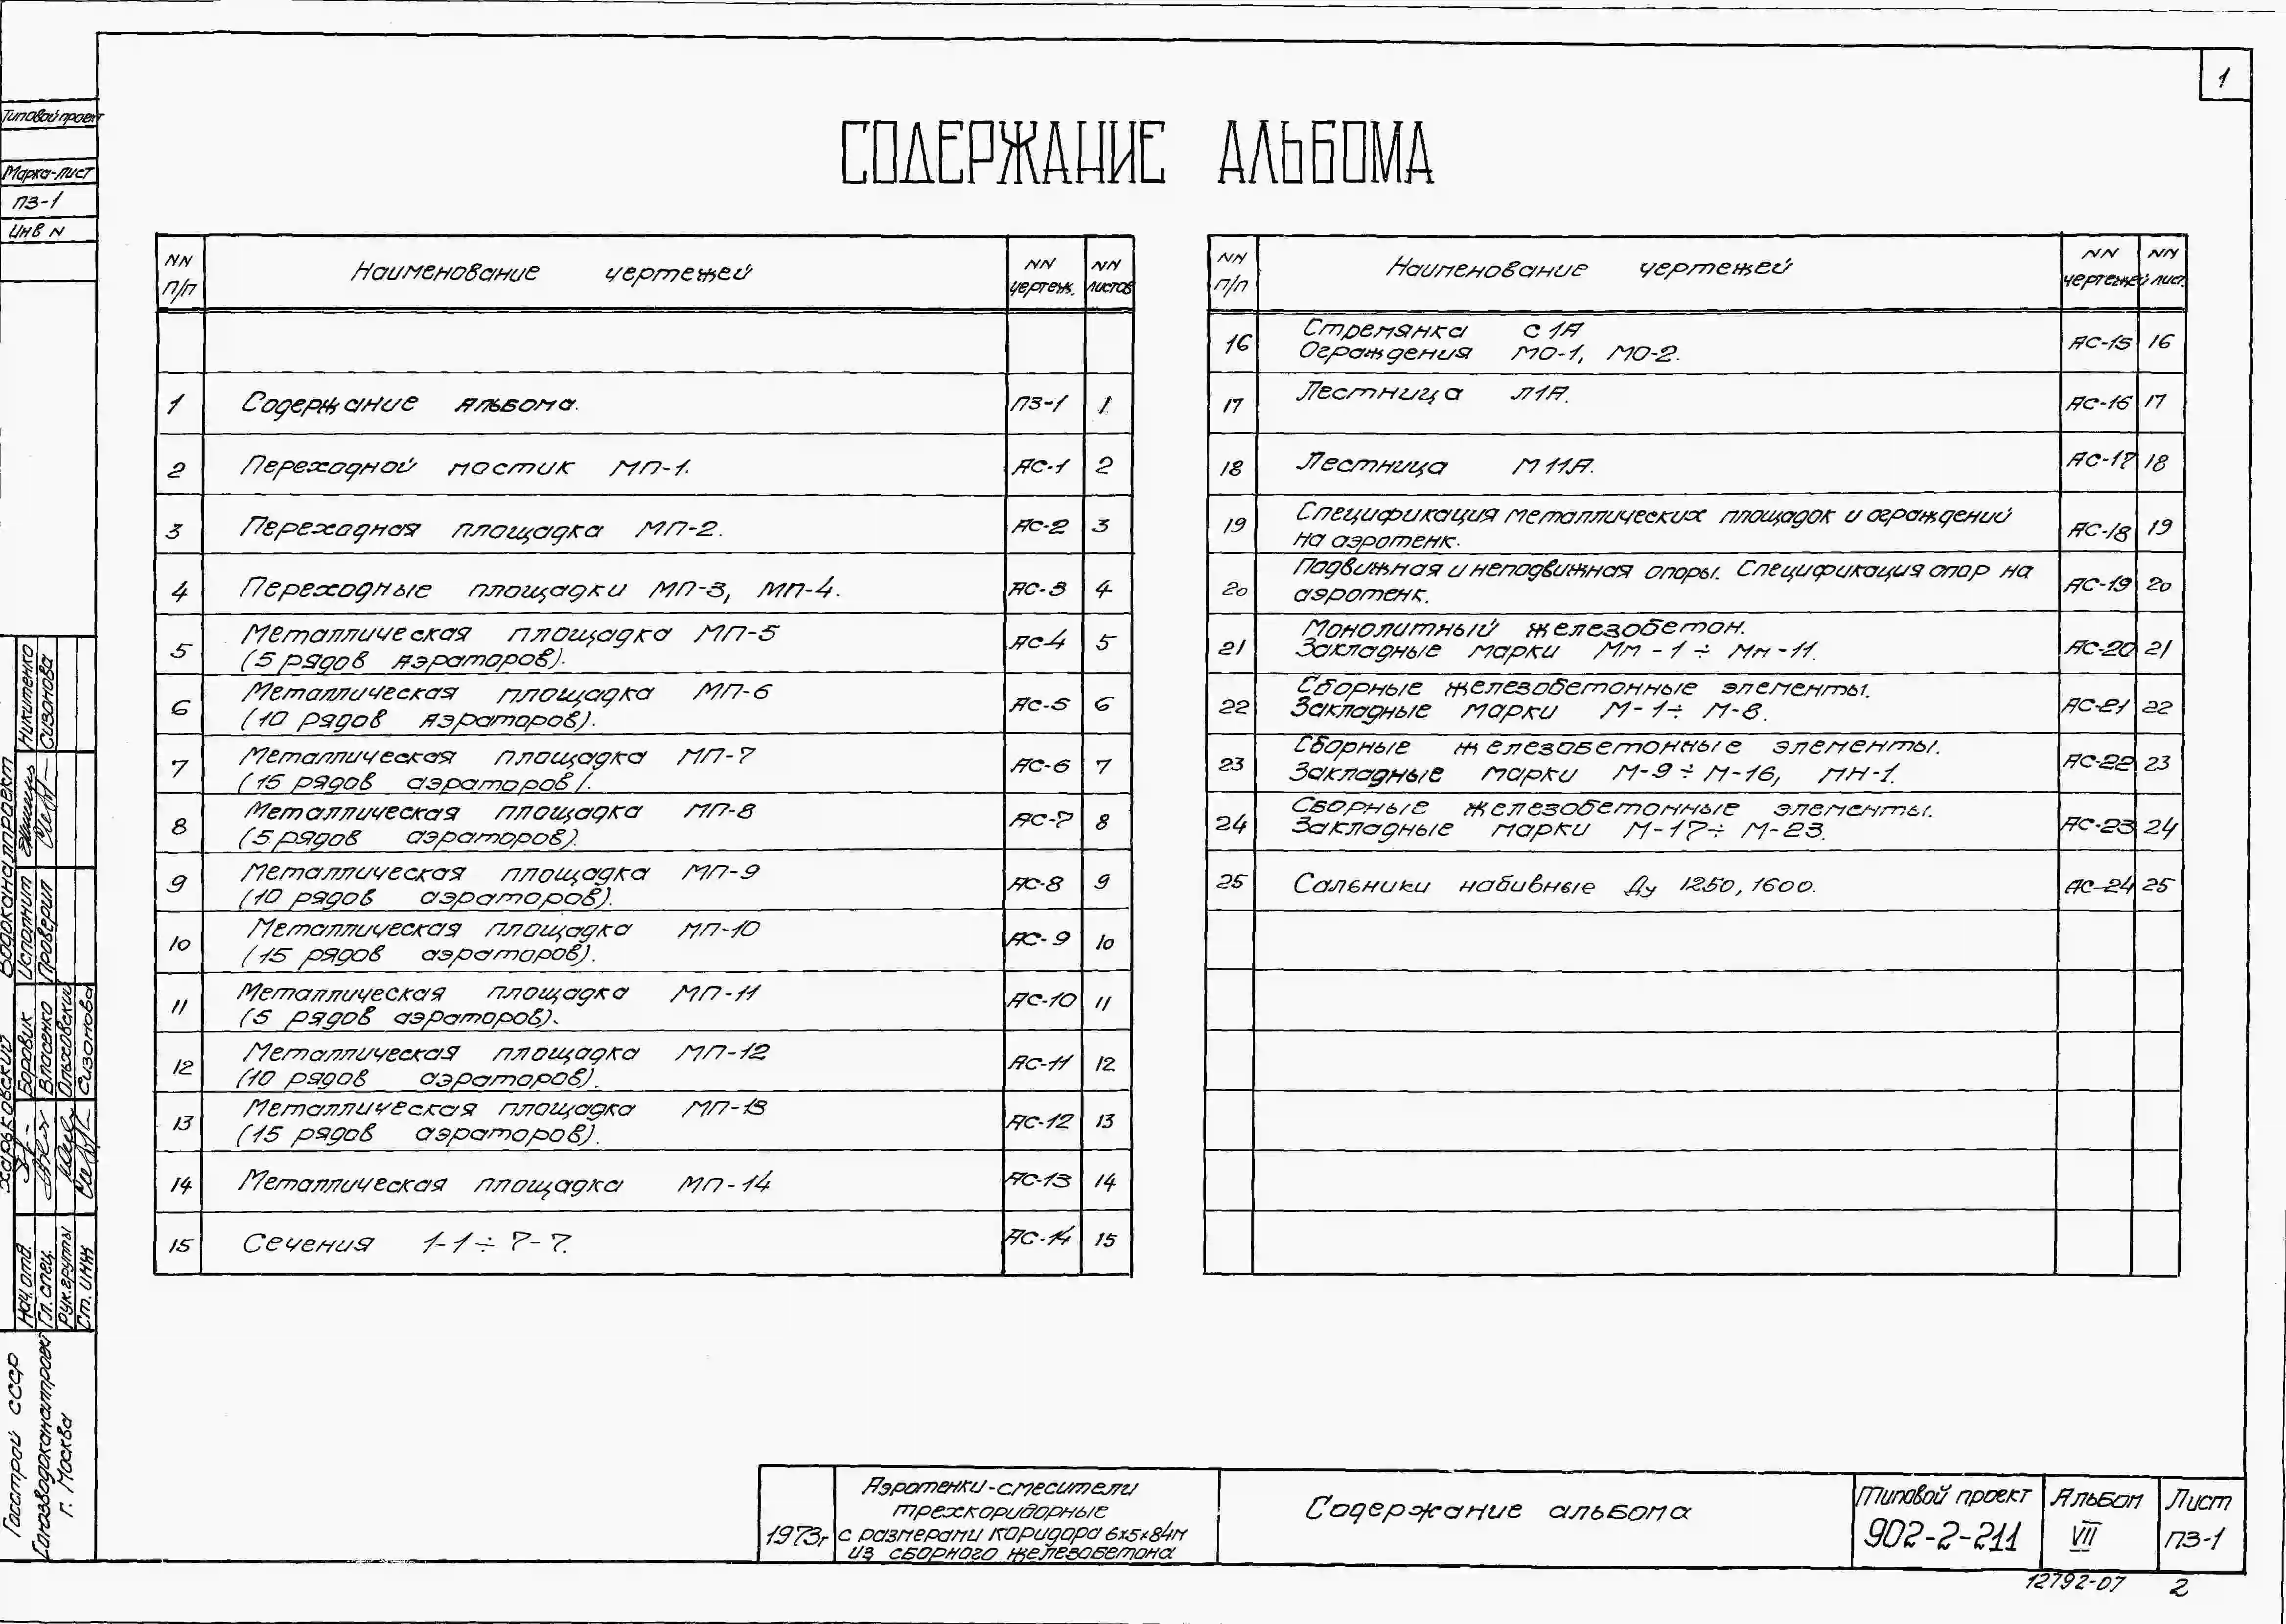 1
Типовой проект
Марка-лист
ПЗ-1
Инв N
СОДЕРЖАНИЕ АЛЬБОМА
NN п/п Наименование чертежей NN чертеж. NN листов
1 Содержание альбома. ПЗ-1 1
2 Переходной мостик МП-1. АС-1 2
3 Переходная площадка МП-2. АС-2 3
4 Переходные площадки МП-3, МП-4. АС-3 4
5 Металлическая площадка МП-5 АС-4 5
(5 рядов аэраторов).
6 Металлическая площадка МП-6 АС-5 6
(10 рядов аэраторов).
7 Металлическая площадка МП-7 АС-6 7
(15 рядов аэраторов).
8 Металлическая площадка МП-8 АС-7 8
(5 рядов аэраторов).
9 Металлическая площадка МП-9 АС-8 9
(10 рядов аэраторов).
10 Металлическая площадка МП-10 АС-9 10
(15 рядов аэраторов).
11 Металлическая площадка МП-11 АС-10 11
(5 рядов аэраторов).
12 Металлическая площадка МП-12 АС-11 12
(10 рядов аэраторов).
13 Металлическая площадка МП-13 АС-12 13
(15 рядов аэраторов).
14 Металлическая площадка МП-14 АС-13 14
15 Сечения 1-1÷7-7. АС-14 15
NN п/п Наименование чертежей NN чертежей NN лист.
16 Стремянка С1А АС-15 16
Ограждения МО-1, МО-2.
17 Лестница Л1А. АС-16 17
18 Лестница М11А. АС-17 18
19 Спецификация металлических площадок и ограждений АС-18 19
на аэротенк.
20 Подвижная и неподвижная опоры. Спецификация опор на АС-19 20
аэротенк.
21 Монолитный железобетон. АС-20 21
Закладные марки Мм-1÷Мм-11.
22 Сборные железобетонные элементы. АС-21 22
Закладные марки М-1÷М-8.
23 Сборные железобетонные элементы. АС-22 23
Закладные марки М-9÷М-16, МН-1.
24 Сборные железобетонные элементы. АС-23 24
Закладные марки М-17÷М-23.
25 Сальники набивные Ду 1250, 1600. АС-24 25
Госстрой СССР
Союзводоканалпроект
г. Москва
Харьковский Водоканалпроект
Нач. отв. Боровик Исполнит Никитенко
Гл. спец. Власенко Проверил Сизанова
Рук. группы Ольховский
Ст. инж Сизонова
1973г
Аэротенки-смесители
трехкоридорные
с размерами коридора 6х5х84м
из сборного железобетона
Содержание альбома
Типовой проект
902-2-211
Альбом
VII
Лист
ПЗ-1
12792-07 2